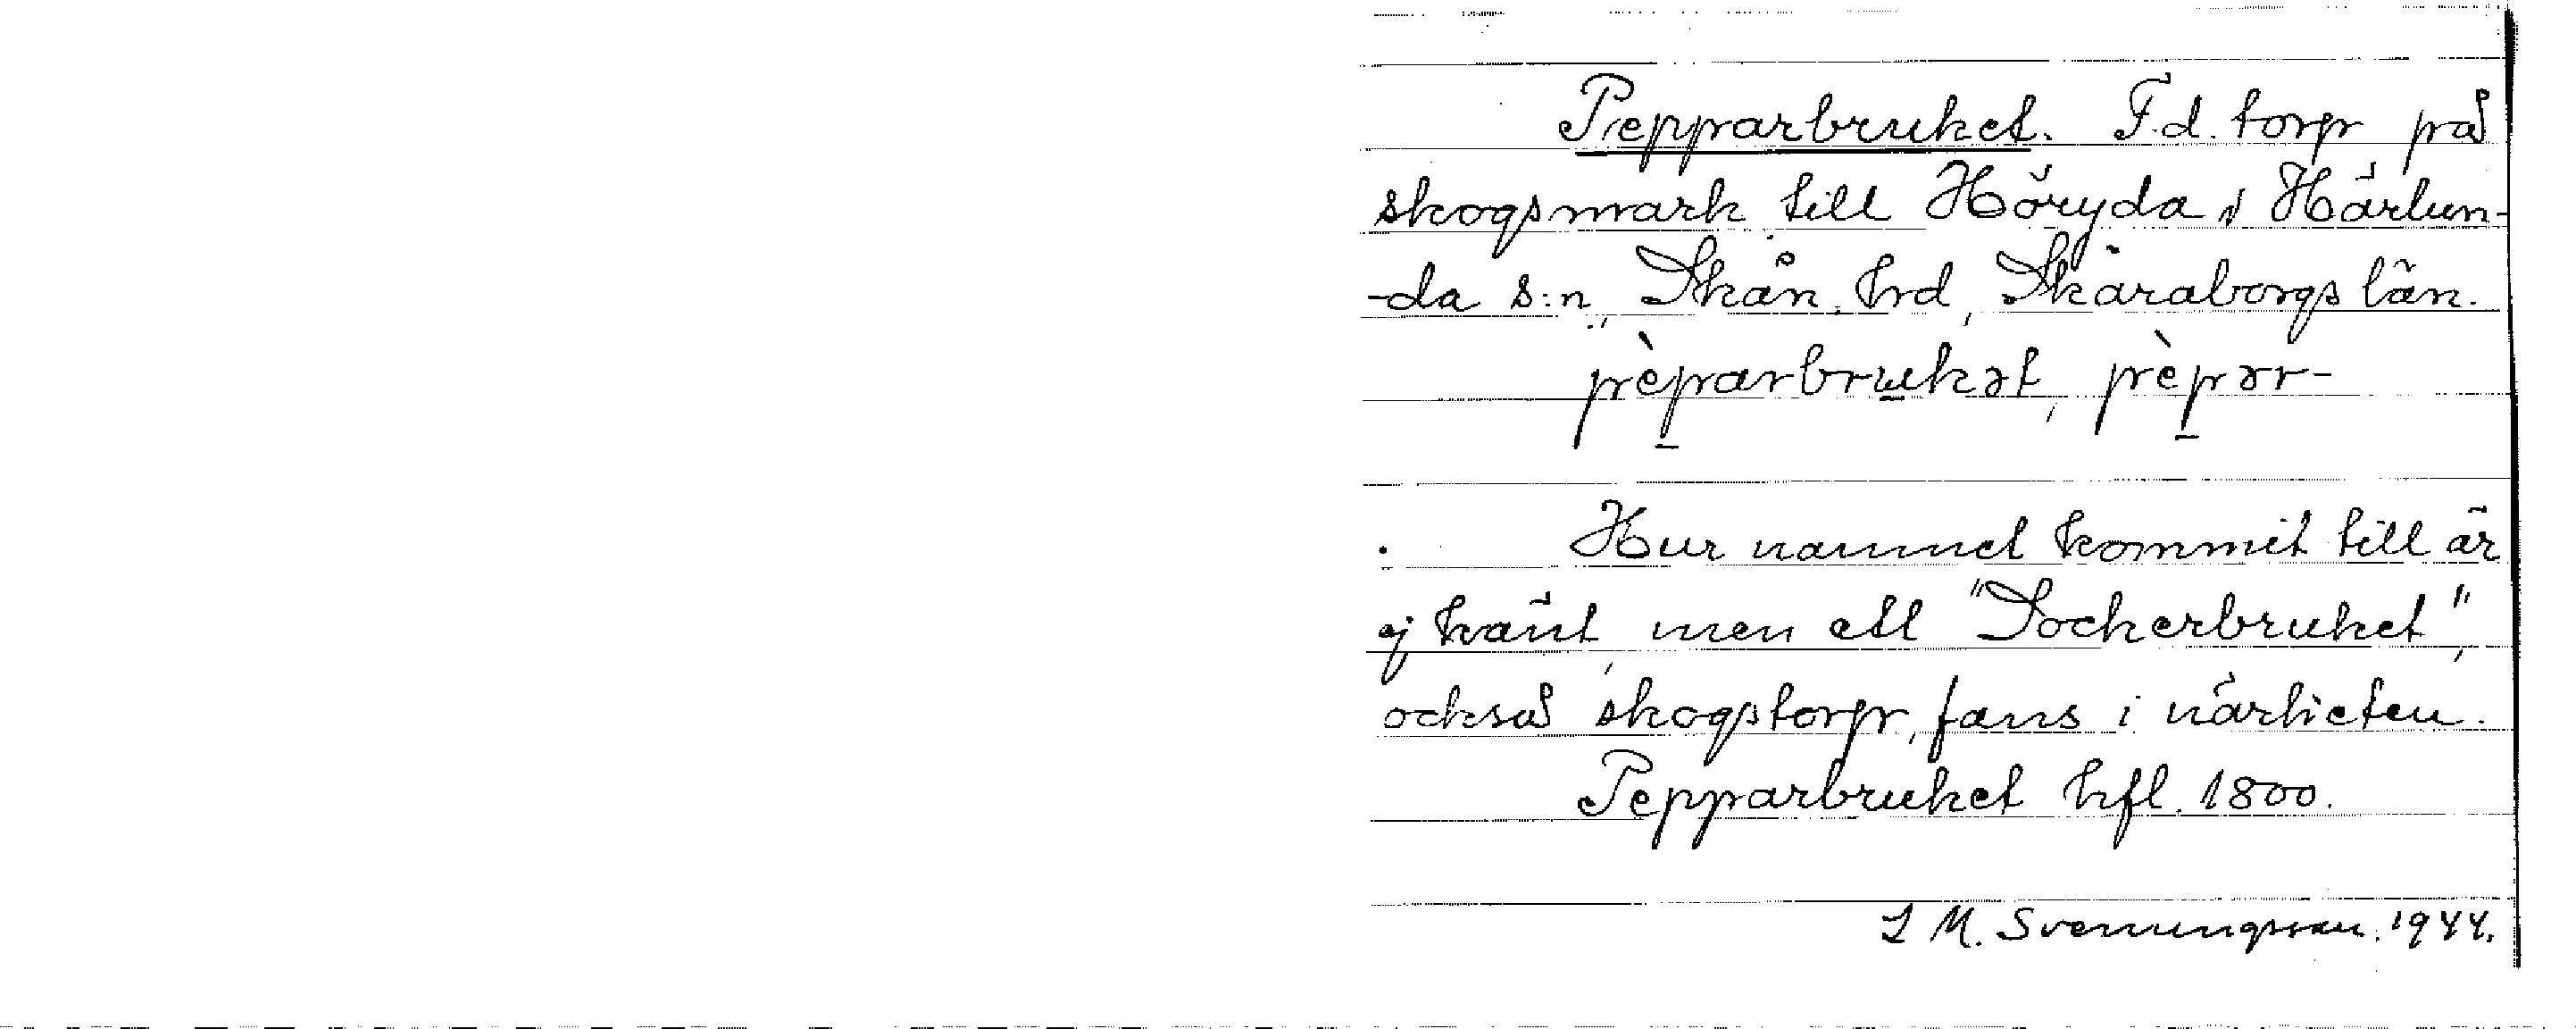 Pepparbruket. F.d. torp på
skogsmark till Höryda i Härlun-
-da s:n, Skån. hrd, Skaraborgs län.
pèparbrukət, pèpər-
Hur namnet kommit till är
ej känt, men ett "Sockerbruket",
också skogstorp, fans i närheten.
Pepparbruket hfl. 1800.
L M. Svenungsson. 1944.